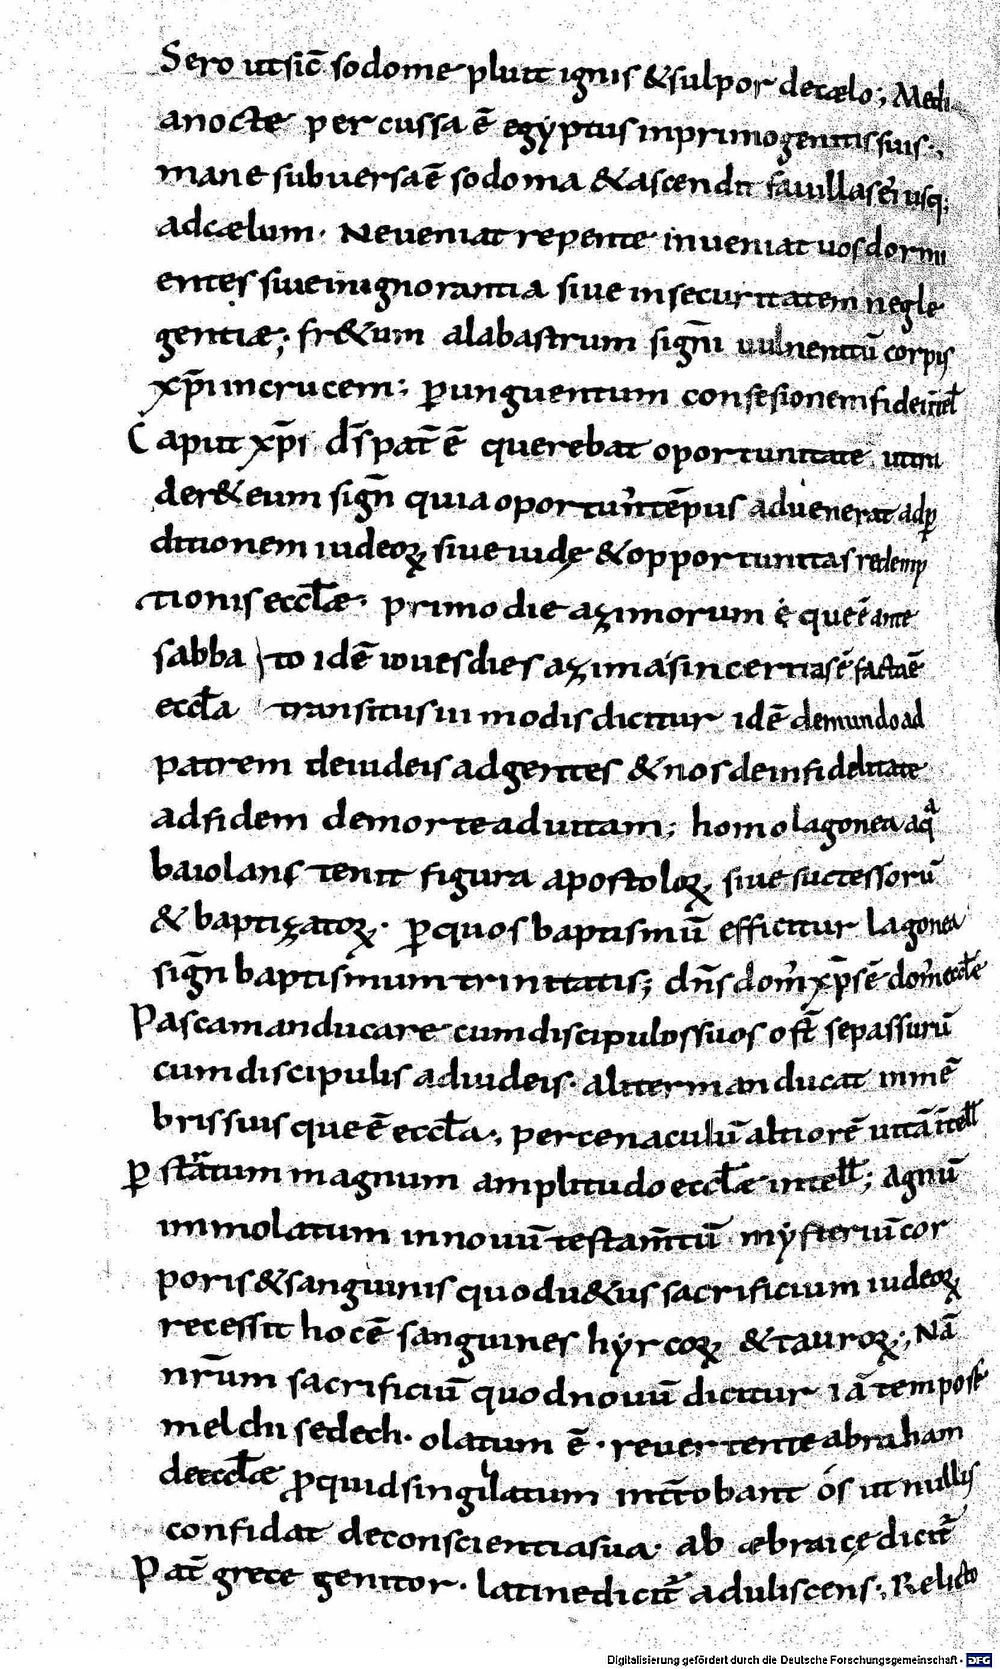 Sero ut sic̄ sodome pluit ignis & sulpor de cælo; Medi
a nocte percussa ē egyptus in primogenitis suis;
mane subuersa ē sodoma & ascendit fauillas ei usq;
ad cælum. Ne ueniat repente inueniat uos dormi
entes siue in ignorantia siue in securitatem negle
gentiæ; fr&um alabastrum signī uulnentū corpis
xp̄i in crucem; ꝑ unguentum confesionem fidei
Caput xp̄i d̄s pat̄ ē querebat oportunitate ut tra
der& eum sign̄ quia oportun̄ tēpus aduenerat ad ꝑ
ditionem iudeoꝝ siue iudę & opportunitas redemp
tionis eccl̄æ. primo die azimorum ē que ē ante
sabbato idē iouesdies azima sinceritas ē facta ē
eccl̄a transitus iii modis dicitur idē de mundo ad
patrem de iudeis ad gentes & nos de infidelitate
ad fidem de morte ad uitam; homo lagonea aq̄
baiolans tenit figura apostoloꝝ siue successorū
& baptizatoꝝ. ꝑ quos baptismū efficitur lagonea
sign̄ baptismum trinitatis; dn̄s dom̄ xp̄s ē dom̄ eccl̄e
Pasca manducare cum discipulos suos ost̄ se passurū
cum discipulis a diuideis. aliter manducat in mē
bris suis que ē eccl̄a; per cenaculū altiorē uitā intell
ꝑ strātum magnum amplitudo eccl̄æ intell; Agnū
immolatum in nouū testam̄tū mysteriū cor
poris & sanguinis quod u&us sacrificium iudeoꝝ
recessit hoc ē sanguines hyrcoꝝ & tauroꝝ; Nā
nr̄um sacrificiū quod nouū dicitur iā tempore
melchisedech. olatum ē. reuertente abraham
de eccl̄æ ꝓ quid singilatum int̄robant ós ut nullis
confidat de conscientia sua. ab æbraicę dicit̄
Pat̄ grece genitor. latine dicit̄ aduliscens; Relicto
Digitalisierung gefördert durch die Deutsche Forschungsgemeinschaft - DFG